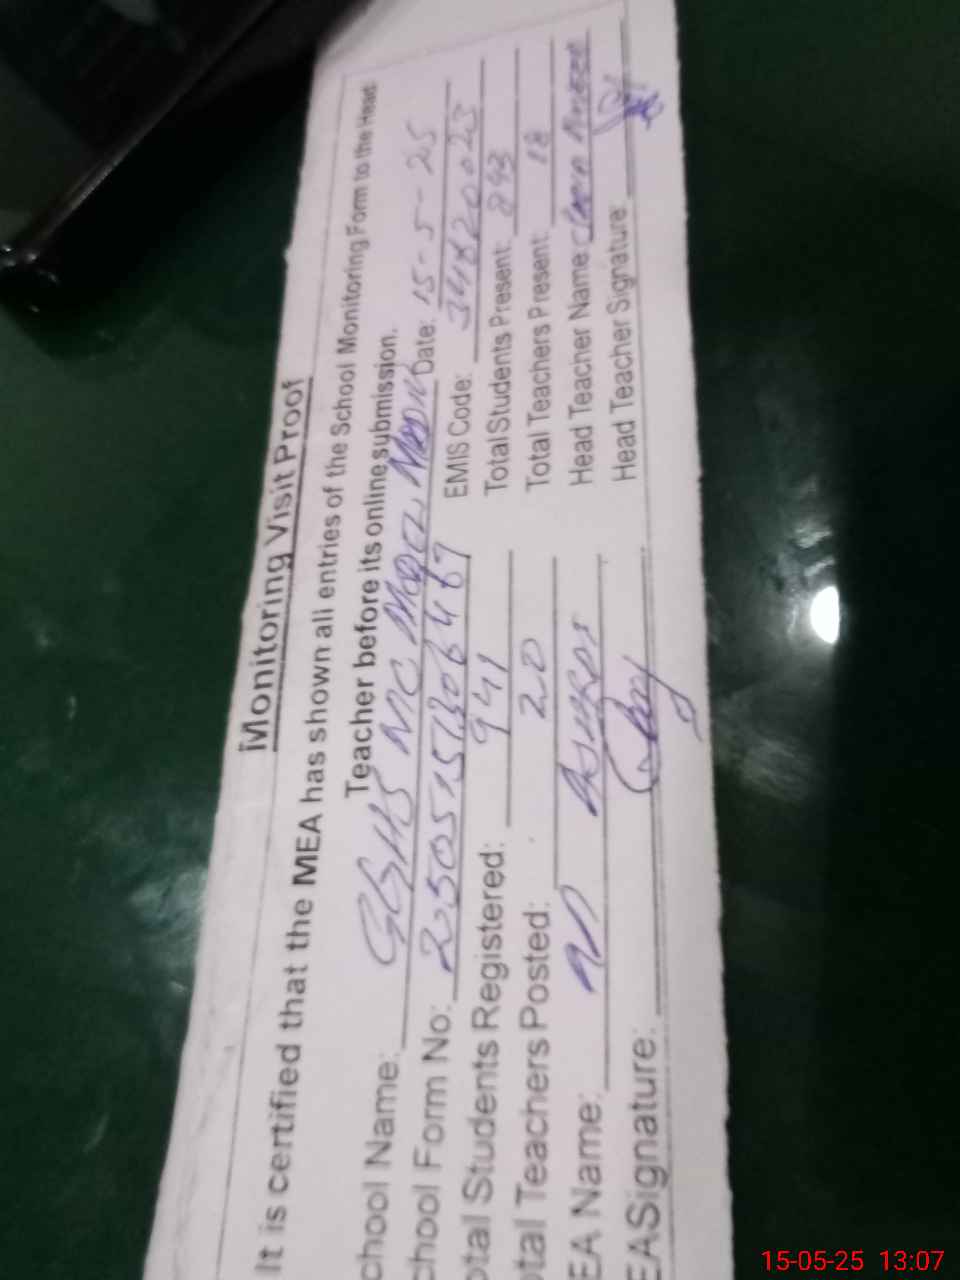 Monitoring Visit Proof
It is certified that the MEA has shown all entries of the School Monitoring Form to the Head
Teacher before its online submission.
chool Name: GGHS MC Date: 15-5-25
chool Form No: EMIS Code:
otal Students Registered: 941 Total Students Present: 893
otal Teachers Posted: 20 Total Teachers Present: 18
EA Name: Head Teacher Name:
EA Signature: Head Teacher Signature:
15-05-25 13:07